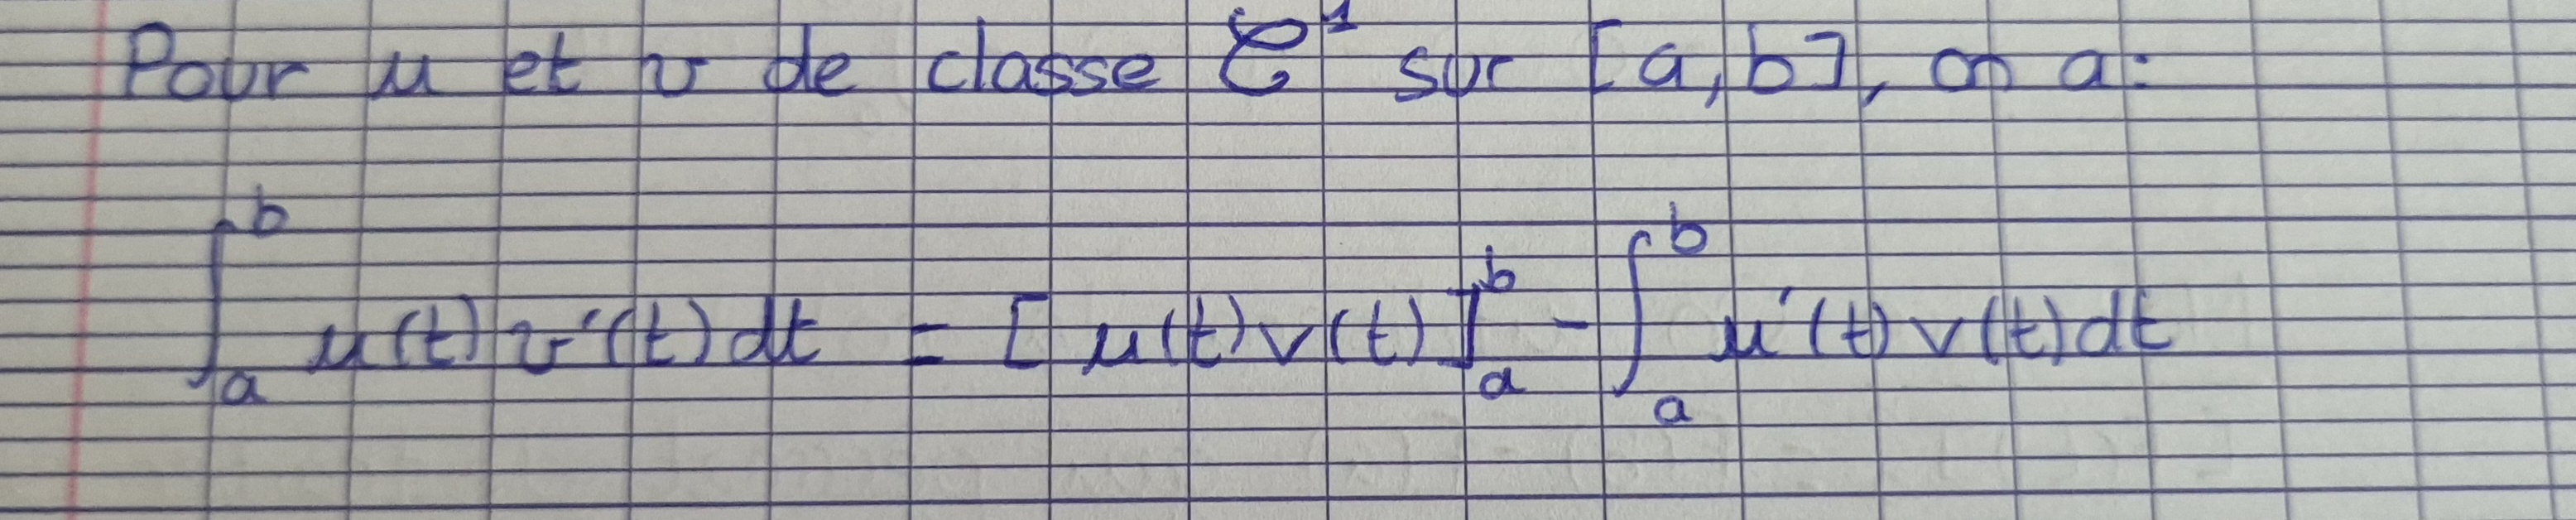 Pour u et v de classe 𝒞¹ sur [a,b], on a:
∫_a^b u(t) v'(t) dt = [u(t)v(t)]_a^b - ∫_a^b u'(t) v(t) dt